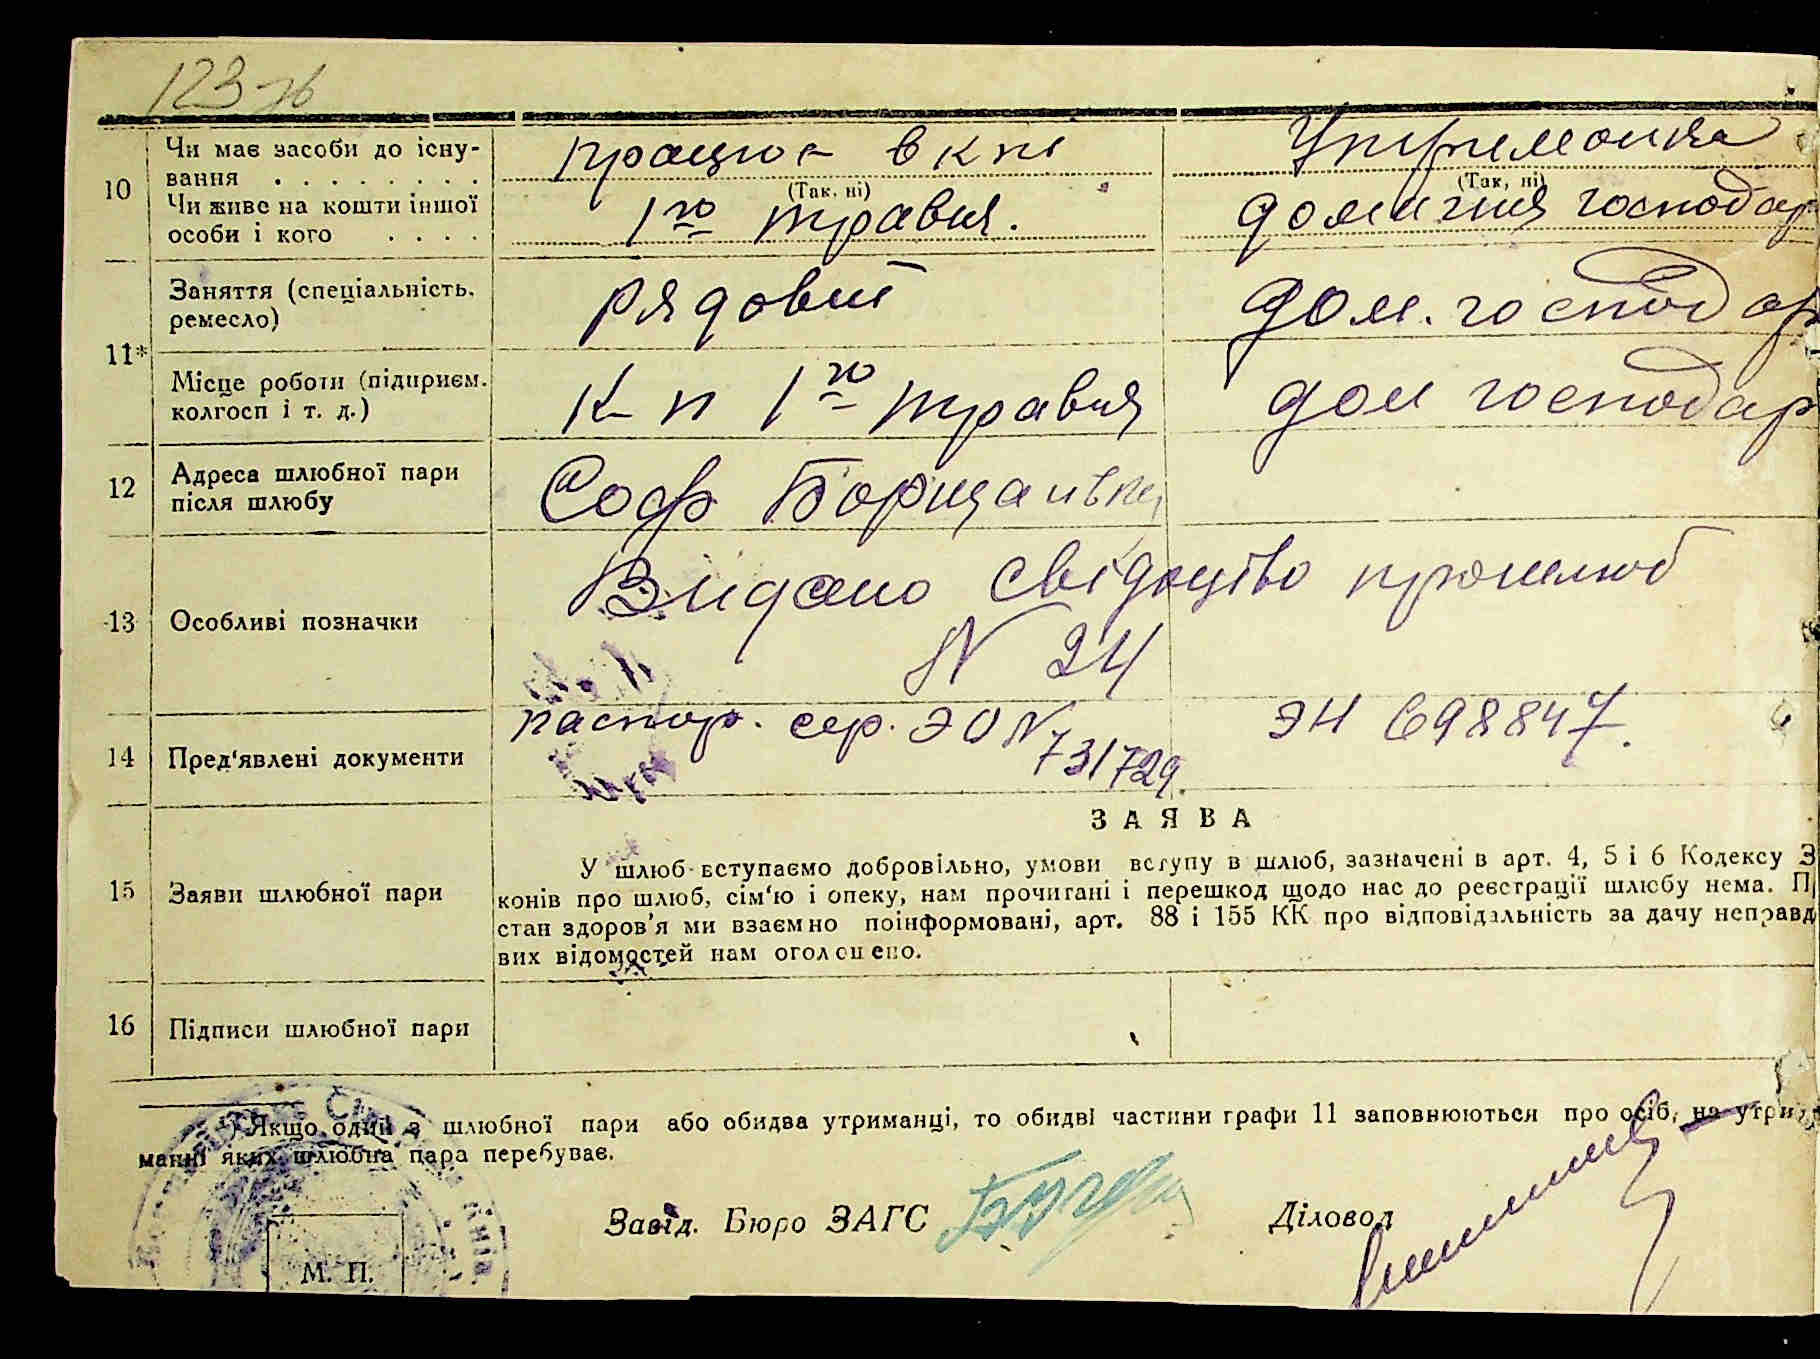 123 зв
10 Чи має засоби до існу- працює в кпі Утриманка
вання . . . . . . . . (Так, ні) (Так, ні)
Чи живе на кошти іншої 1го травня. домашня господар
особи і кого . . . .
Заняття (спеціальність, рядовий дом. господар
ремесло)
11*
Місце роботи (підприєм. К п 1го травня дом господар
колгосп і т. д.)
12 Адреса шлюбної пари Соф Борщаівка
після шлюбу
13 Особливі позначки Видано свідоцтво про шлюб
N 24
14 Пред'явлені документи паспор. сер. ЭО N 731729. ЭН 698847.
ЗАЯВА
15 Заяви шлюбної пари У шлюб вступаємо добровільно, умови вступу в шлюб, зазначені в арт. 4, 5 і 6 Кодексу З
конів про шлюб, сім'ю і опеку, нам прочитані і перешкод щодо нас до реєстрації шлюбу нема. П
стан здоров'я ми взаємно поінформовані, арт. 88 і 155 КК про відповідальність за дачу неправд
вих відомостей нам оголошено.
16 Підписи шлюбної пари
*) Якщо один з шлюбної пари або обидва утриманці, то обидві частини графи 11 заповнюються про осіб, на утри
манні яких шлюбна пара перебуває.
Завід. Бюро ЗАГС Діловод
М. П.